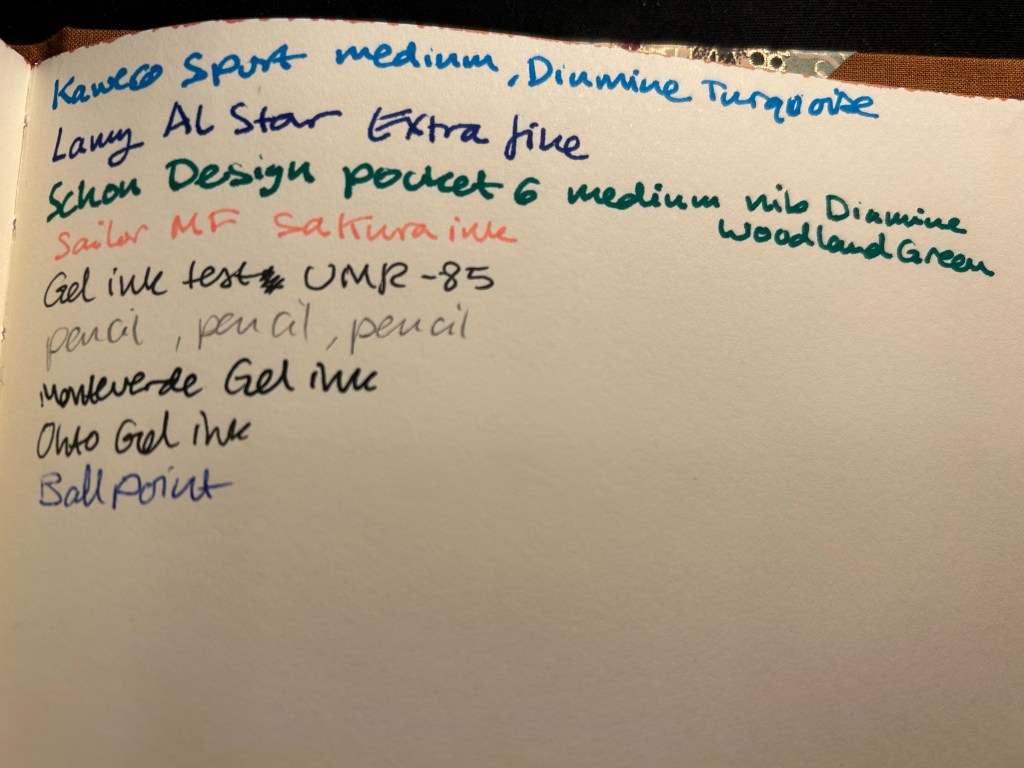 Kaweco Sport medium, Diamine Turquoise
Lamy AL Star Extra fine
Schon Design pocket 6 medium nib Diamine
Woodland Green
Sailor MF Sakura ink
Gel ink test UMR-85
pencil, pencil, pencil
Monteverde Gel ink
Ohto Gel ink
Ball point